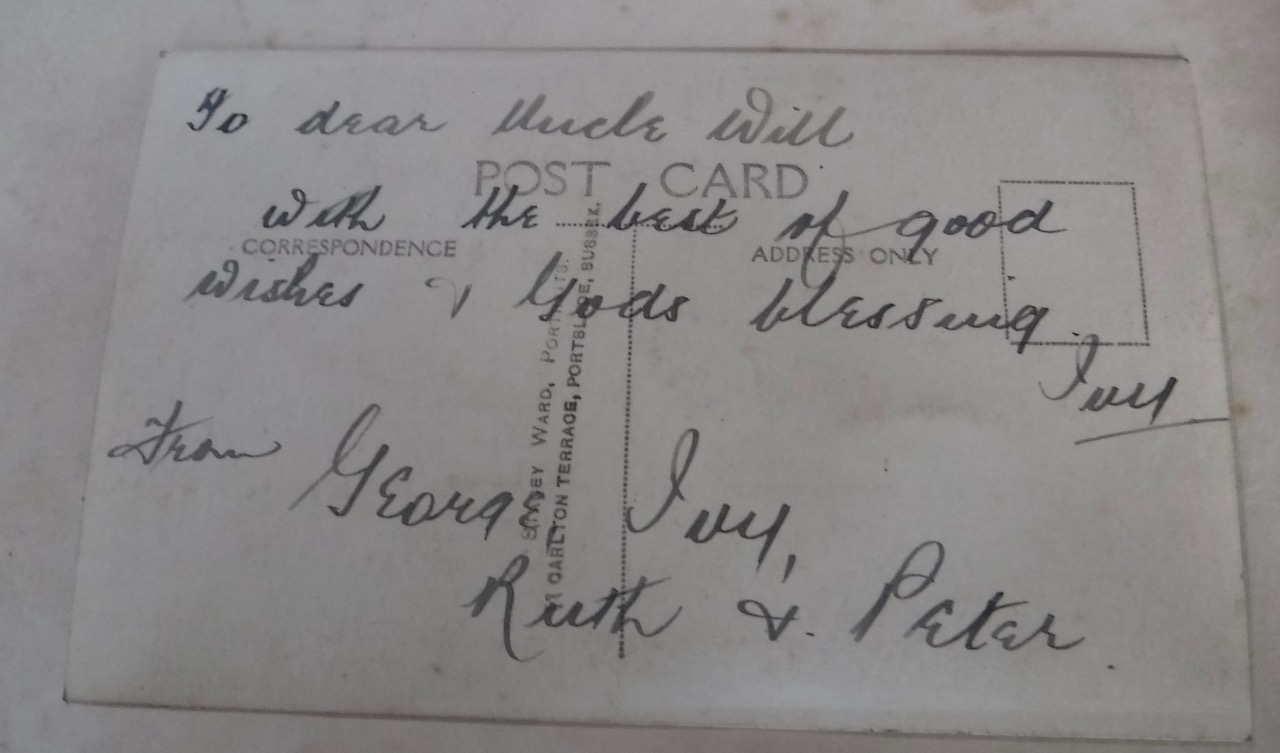 To dear Uncle Will
POST CARD
with the best of good
CORRESPONDENCE
ADDRESS ONLY
wishes & Gods blessing.
Ivy
From George, Ivy,
Ruth & Peter.
WARD,
CARLTON TERRACE, PORTSLADE, SUSSEX.